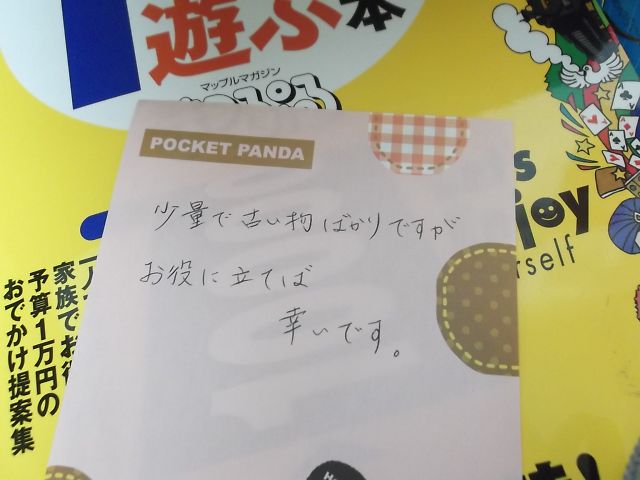 遊ぶ本
マップルマガジン
POCKET PANDA
少量で古い物ばかりですが
お役に立てば
幸いです。
予算1万円の
おでかけ提案集
joy
rself